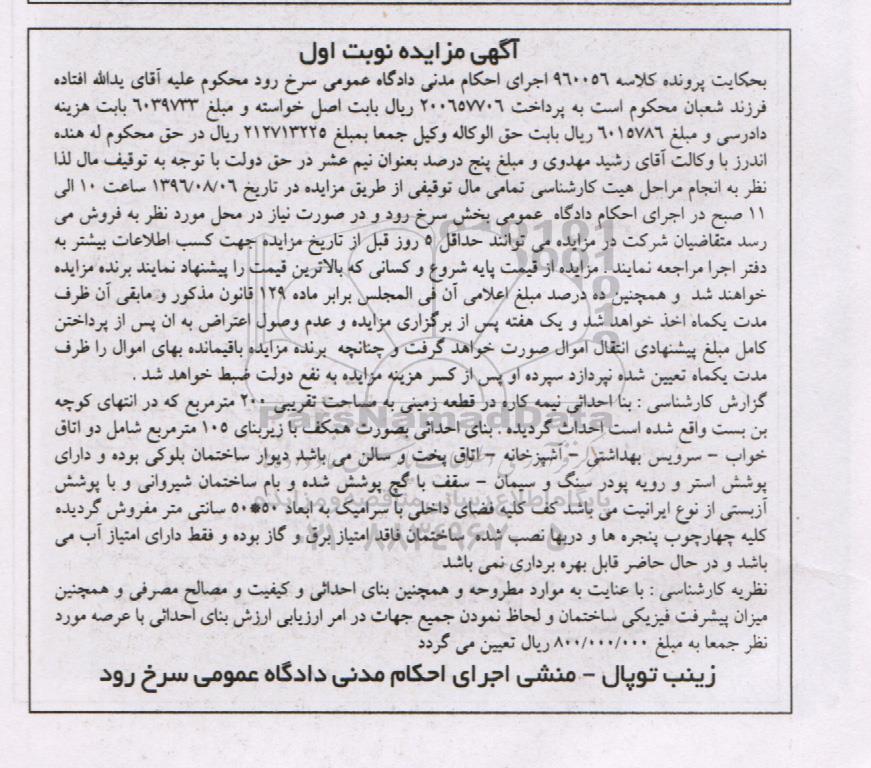 آگهی مزایده نوبت اول
بحکایت پرونده کلاسه ۹۶۰۰۵۶ اجرای احکام مدنی دادگاه عمومی سرخ رود محکوم علیه آقای یدالله افتاده
فرزند شعبان محکوم است به پرداخت ۲۰۰۶۵۷۷۰۶ ریال بابت اصل خواسته و مبلغ ۶۰۳۹۷۳۳ بابت هزینه
دادرسی و مبلغ ۶۰۱۵۷۸۶ ریال بابت حق الوکاله وکیل جمعا بمبلغ ۲۱۲۷۱۳۲۲۵ ریال در حق محکوم له هنده
اندرز با وکالت آقای رشید مهدوی و مبلغ پنج درصد بعنوان نیم عشر در حق دولت با توجه به توقیف مال لذا
نظر به انجام مراحل هیت کارشناسی تمامی مال توقیفی از طریق مزایده در تاریخ ۱۳۹۶/۰۸/۰۶ ساعت ۱۰ الی
۱۱ صبح در اجرای احکام دادگاه عمومی بخش سرخ رود و در صورت نیاز در محل مورد نظر به فروش می
رسد متقاضیان شرکت در مزایده می توانند حداقل ۵ روز قبل از تاریخ مزایده جهت کسب اطلاعات بیشتر به
دفتر اجرا مراجعه نمایند . مزایده از قیمت پایه شروع و کسانی که بالاترین قیمت را پیشنهاد نمایند برنده مزایده
خواهند شد و همچنین ده درصد مبلغ اعلامی آن فی المجلس برابر ماده ۱۲۹ قانون مذکور و مابقی آن ظرف
مدت یکماه اخذ خواهد شد و یک هفته پس از برگزاری مزایده و عدم وصول اعتراض به ان پس از پرداختن
کامل مبلغ پیشنهادی انتقال اموال صورت خواهد گرفت و چنانچه برنده مزایده باقیمانده بهای اموال را ظرف
مدت یکماه تعیین شده نپردازد سپرده او پس از کسر هزینه مزایده به نفع دولت ضبط خواهد شد .
گزارش کارشناسی : بنا احداثی نیمه کاره در قطعه زمینی به مساحت تقریبی ۲۰۰ مترمربع که در انتهای کوچه
بن بست واقع شده است احداث گردیده . بنای احداثی بصورت همکف با زیربنای ۱۰۵ مترمربع شامل دو اتاق
خواب - سرویس بهداشتی - آشپزخانه - اتاق پخت و سالن می باشد دیوار ساختمان بلوکی بوده و دارای
پوشش استر و رویه پودر سنگ و سیمان - سقف با گچ پوشش شده و بام ساختمان شیروانی و با پوشش
آزبستی از نوع ایرانیت می باشد کف کلیه فضای داخلی با سرامیک به ابعاد ۵۰*۵۰ سانتی متر مفروش گردیده
کلیه چهارچوب پنجره ها و دربها نصب شده ساختمان فاقد امتیاز برق و گاز بوده و فقط دارای امتیاز آب می
باشد و در حال حاضر قابل بهره برداری نمی باشد
نظریه کارشناسی : با عنایت به موارد مطروحه و همچنین بنای احداثی و کیفیت و مصالح مصرفی و همچنین
میزان پیشرفت فیزیکی ساختمان و لحاظ نمودن جمیع جهات در امر ارزیابی ارزش بنای احداثی با عرصه مورد
نظر جمعا به مبلغ ۸۰۰/۰۰۰/۰۰۰ ریال تعیین می گردد
زینب توپال - منشی اجرای احکام مدنی دادگاه عمومی سرخ رود
ParsNamadData
پایگاه اطلاع رسانی مناقصه و مزایده